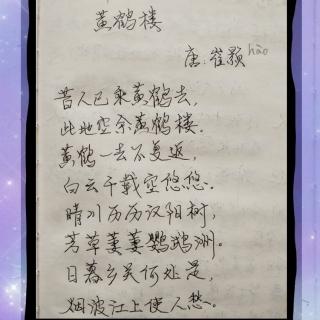 黄鹤楼
唐:崔颢hào
昔人已乘黄鹤去,
此地空余黄鹤楼.
黄鹤一去不复返,
白云千载空悠悠.
晴川历历汉阳树,
芳草萋萋鹦鹉洲。
日暮乡关何处是,
烟波江上使人愁。